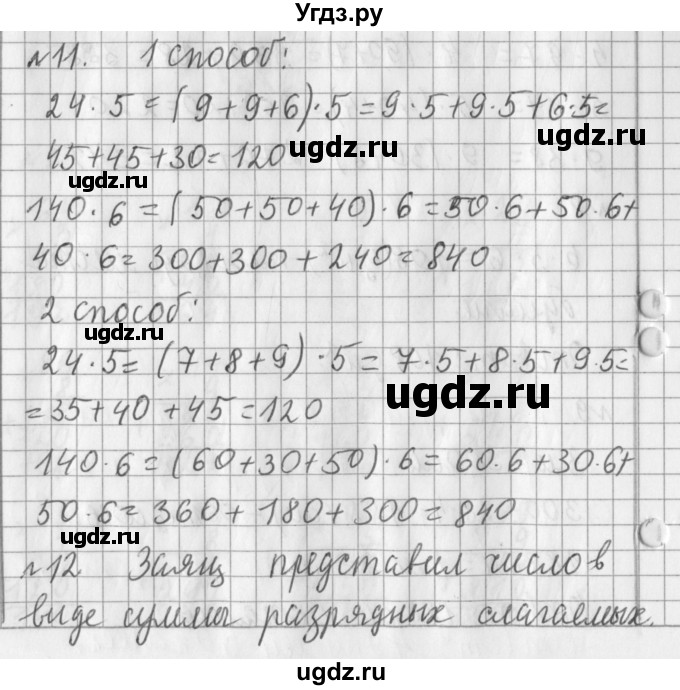 Угдз.ру
№11. 1 способ:
24·5=(9+9+6)·5=9·5+9·5+6·5=
45+45+30=120
ugdz.ru
ugdz.ru
140·6=(50+50+40)·6=50·6+50·6+
40·6=300+300+240=840
2 способ:
ugdz.ru
24·5=(7+8+9)·5=7·5+8·5+9·5=
=35+40+45=120
ugdz.ru
140·6=(60+30+50)·6=60·6+30·6+
50·6=360+180+300=840
ugdz.ru
№12 Заяц представил число в
виде суммы разрядных слагаемых.
ugdz.ru